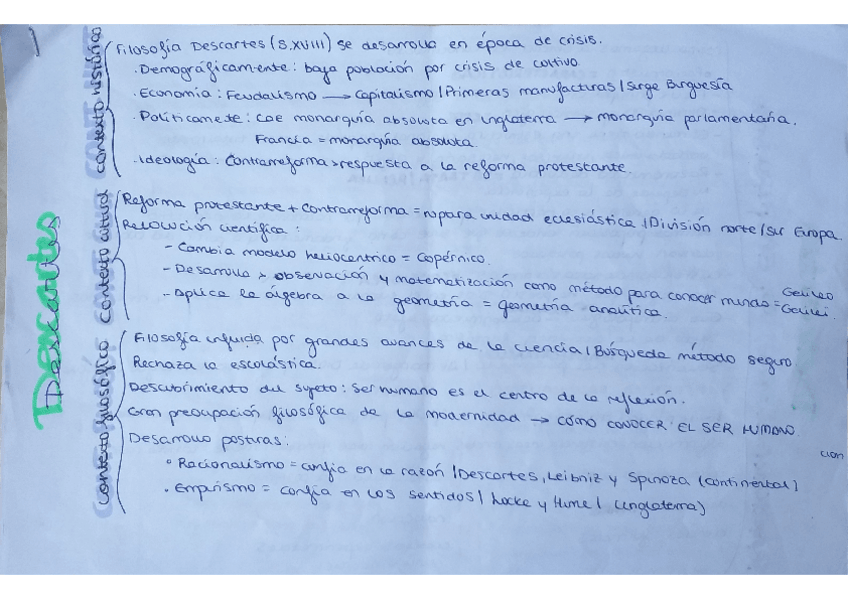 Descartes
contexto histórico
Filosofía Descartes (S.XVIII) se desarrolla en época de crisis.
· Demográficamente: baja población por crisis de cultivo
· Economía: Feudalismo → Capitalismo / Primeras manufacturas / Surge Burguesía
· Políticamete: Cae monarquía absoluta en Inglaterra → monarquía parlamentaria.
Francia = monarquía absoluta.
· Ideología: Contrarreforma > respuesta a la reforma protestante.
contexto cultural
Reforma protestante + Contrarreforma = ruptura unidad eclesiástica / División norte/sur Europa.
Revolución científica:
- Cambia modelo heliocentrico = Copérnico.
- Desarrollo > observación y matematización como método para conocer mundo = Galileo Galilei.
- Aplica le álgebra a la geometría = geometría analítica.
contexto filosófico
Filosofía influida por grandes avances de la ciencia / Búsqueda método seguro
Rechaza la escolástica.
Descubrimiento del sujeto: Ser humano es el centro de la reflexión.
Gran preocupación filosófica de la modernidad → CÓMO CONOCER EL SER HUMANO.
Desarrollo posturas:
· Racionalismo = confía en la razón / Descartes, Leibniz y Spinoza (continental)
· Empirismo = confía en los sentidos / Locke y Hume / (Inglaterra)
cion